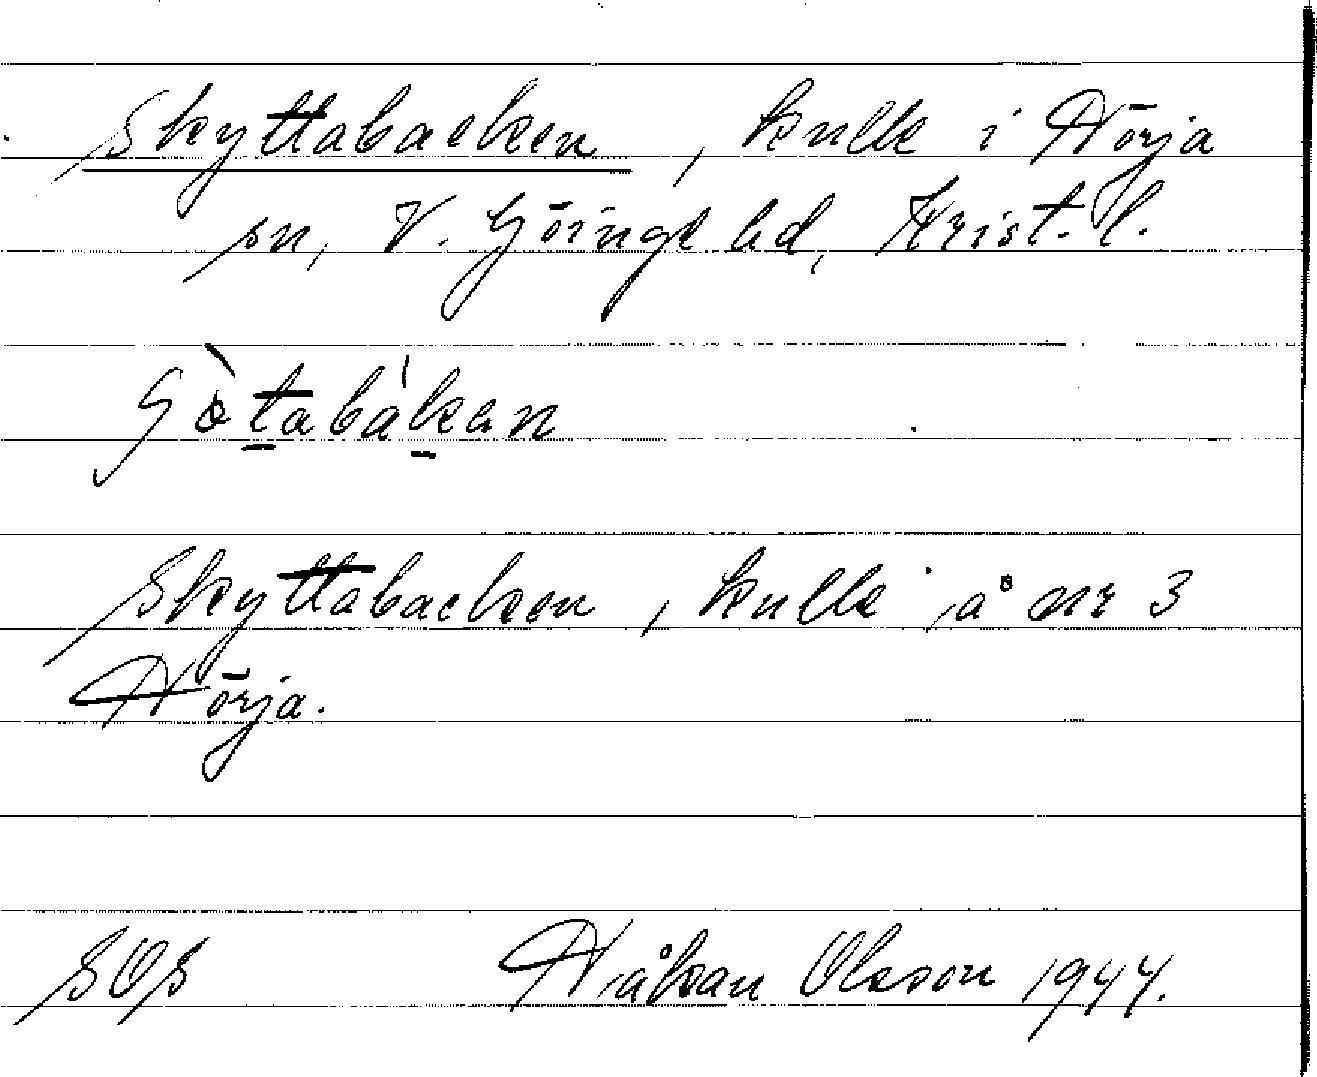 Skyttabacken, kulle i Nörja
sn, V. Göinge hd, Krist. l.
Skyttabacken, kulle å nr 3
Nörja.
SOS Håkan Olsson 1944.